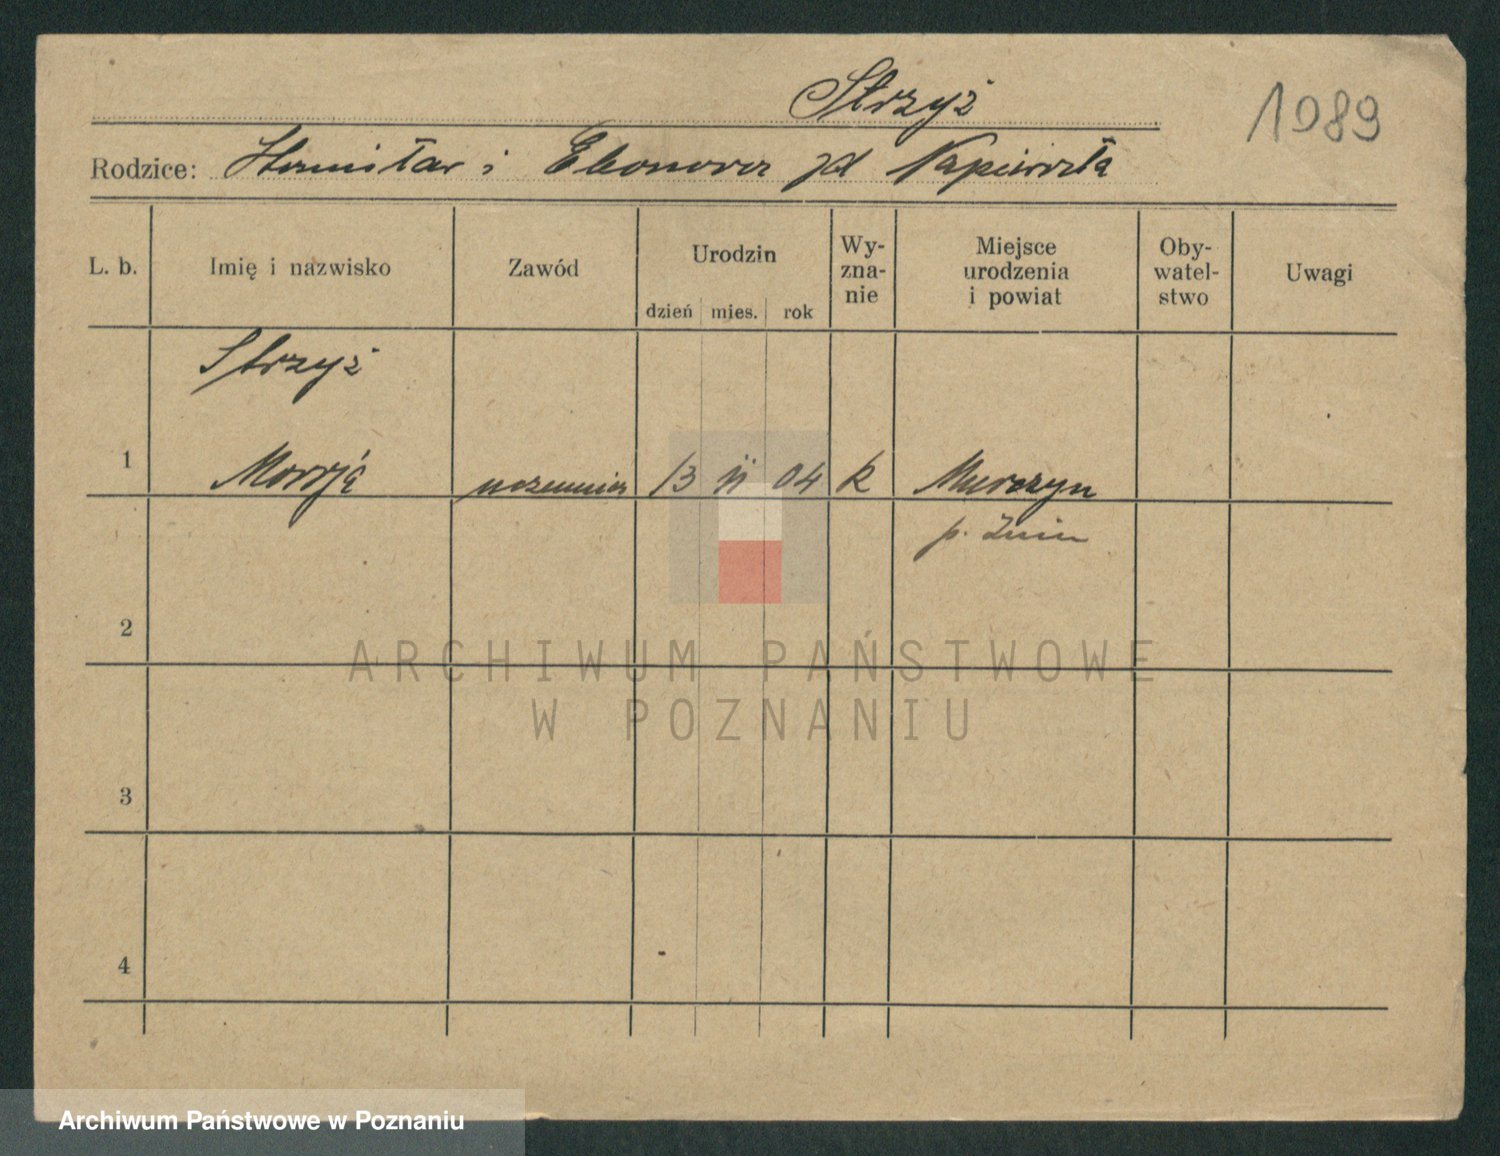 Strzyż
1989
Rodzice: Stanisław i Eleonora zd Napierała
L. b.
Imię i nazwisko
Zawód
Urodzin
dzień
mies.
rok
Wy-
zna-
nie
Miejsce
urodzenia
i powiat
Oby-
watel-
stwo
Uwagi
Strzyż
1
Marja
uczennica
13
II
04
k
Murczyn
p. Żnin
2
3
4
ARCHIWUM PAŃSTWOWE
W POZNANIU
Archiwum Państwowe w Poznaniu